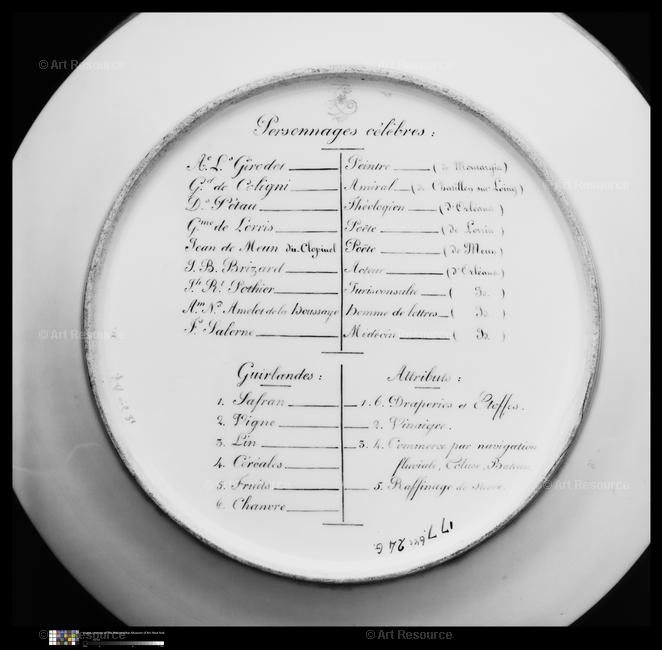 Personnages célèbres :
Ae. Ls. Girodet — Peintre — (de Montargis)
Gd. de Coligni — Amiral — (de Chatillon sur Loing)
Ds. Pétau — Théologien — (d'Orléans)
Gme de Lorris — Poëte — (de Lorris)
Jean de Meun du Clopinel — Poëte — (de Meun)
J. B. Brizard — Acteur — (d'Orléans)
Jh. Rt. Pothier — Jurisconsulte — ( Id. )
Am. Ns. Amelot de la Houssaye — Homme de lettres — ( Id. )
Fs. Salerne — Médecin — ( Id. )
Guirlandes : Attributs :
1. Safran — 1. 6. Draperies et Etoffes.
2. Vigne — 2. Vinaigre.
3. Lin — 3. 4. Commerce par navigation
4. Céréales — fluviale, Ecluse, Bateau.
5. Fruits — 5. Raffinage de sucre.
6. Chanvre
177bre 24 G.
© Art Resource
© Art Resource
© Art Resource
© Art Resource
© Art Resource
© Art Resource
© Art Resource
© Art Resource
© Art Resource